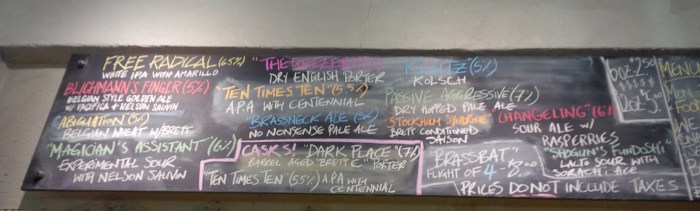 FREE RADICAL (6.5%)
WHITE IPA WITH AMARILLO
BLICHMANN'S FINGER (5%)
BELGIAN STYLE GOLDEN ALE
w/ PACIFICA & NELSON SAUVIN
BELGIAN WHEAT w/BRETT
"MAGICIAN'S ASSISTANT" (6%)
EXPERIMENTAL SOUR
WITH NELSON SAUVIN
DRY ENGLISH PORTER
"TEN TIMES TEN" (5.5%)
A.P.A WITH CENTENNIAL
BRASSNECK ALE
NO NONSENSE PALE ALE
CASKS! "DARK PLACE" (7%)
BARREL AGED BRETT C. PORTER
"TEN TIMES TEN" (5.5%) A.P.A WITH
CENTENNIAL
KOLSCH
PASSIVE AGGRESSIVE (7%)
DRY HOPPED PALE ALE
STOCKHOLM SYNDROME
BRETT CONDITIONED
SAISON
"BRASSBAT"
FLIGHT OF 4
CHANGELING" (6%)
SOUR ALE w/
RASPBERRIES
SHOGUN'S FUNDOSHI
LACTO SOUR WITH
SORACHI ACE
PRICES DO NOT INCLUDE TAXES
MENU